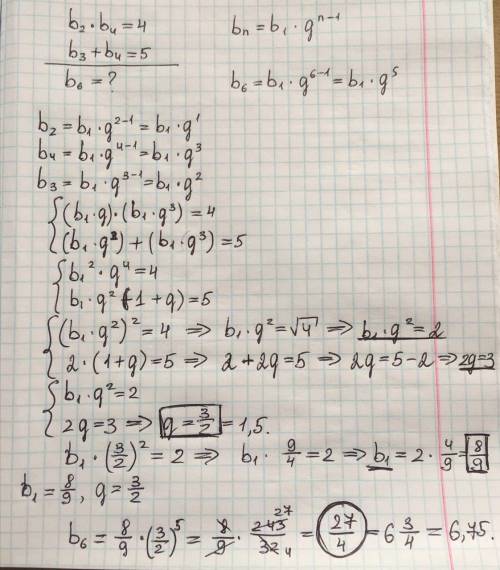 b₂ · b₄ = 4
b₃ + b₄ = 5
b₆ = ?
bₙ = b₁ · g^(n-1)
b₆ = b₁ · g^(6-1) = b₁ · g⁵
b₂ = b₁ · g^(2-1) = b₁ · g¹
b₄ = b₁ · g^(4-1) = b₁ · g³
b₃ = b₁ · g^(3-1) = b₁ · g²
{(b₁ · g) · (b₁ · g³) = 4
(b₁ · g²) + (b₁ · g³) = 5
{b₁² · g⁴ = 4
b₁ · g² (1 + g) = 5
{(b₁ · g²)² = 4 ⇒ b₁ · g² = √4 ⇒ b₁ · g² = 2
2 · (1 + g) = 5 ⇒ 2 + 2g = 5 ⇒ 2g = 5 - 2 ⇒ 2g = 3
{b₁ · g² = 2
2g = 3 ⇒ g = 3/2 = 1,5.
b₁ · (3/2)² = 2 ⇒ b₁ · 9/4 = 2 ⇒ b₁ = 2 · 4/9 = 8/9
b₁ = 8/9, g = 3/2
b₆ = 8/9 · (3/2)⁵ = 8/9 · 243 27/32 4 = 27/4 = 6 3/4 = 6,75.